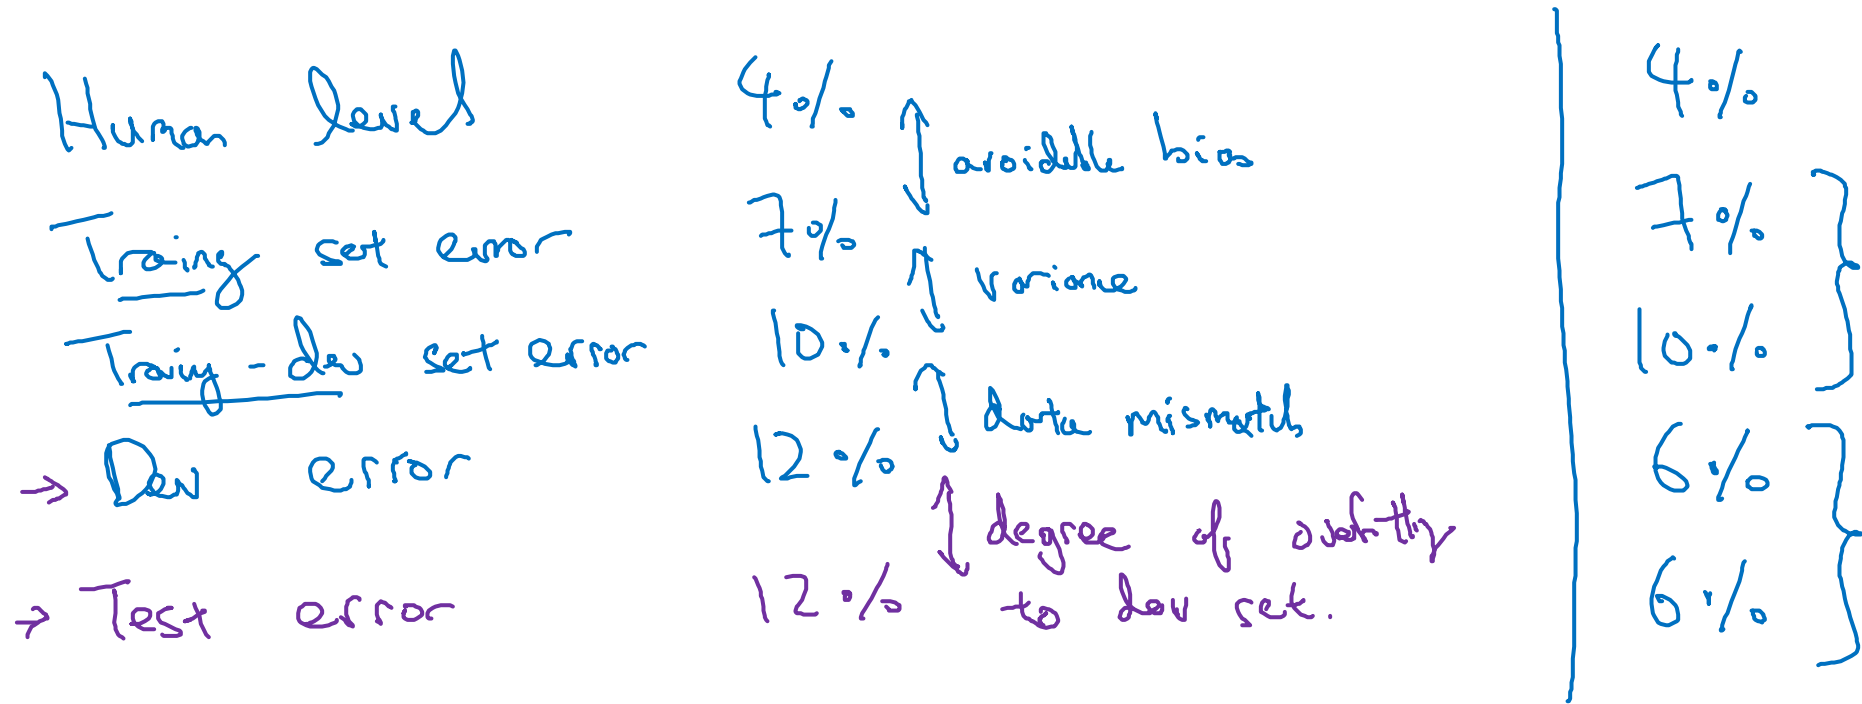 Human level 4% 4%
avoidable bias
Training set error 7% 7%
variance
Training-dev set error 10% 10%
data mismatch
→ Dev error 12% 6%
degree of overfitting
→ Test error 12% to dev set. 6%